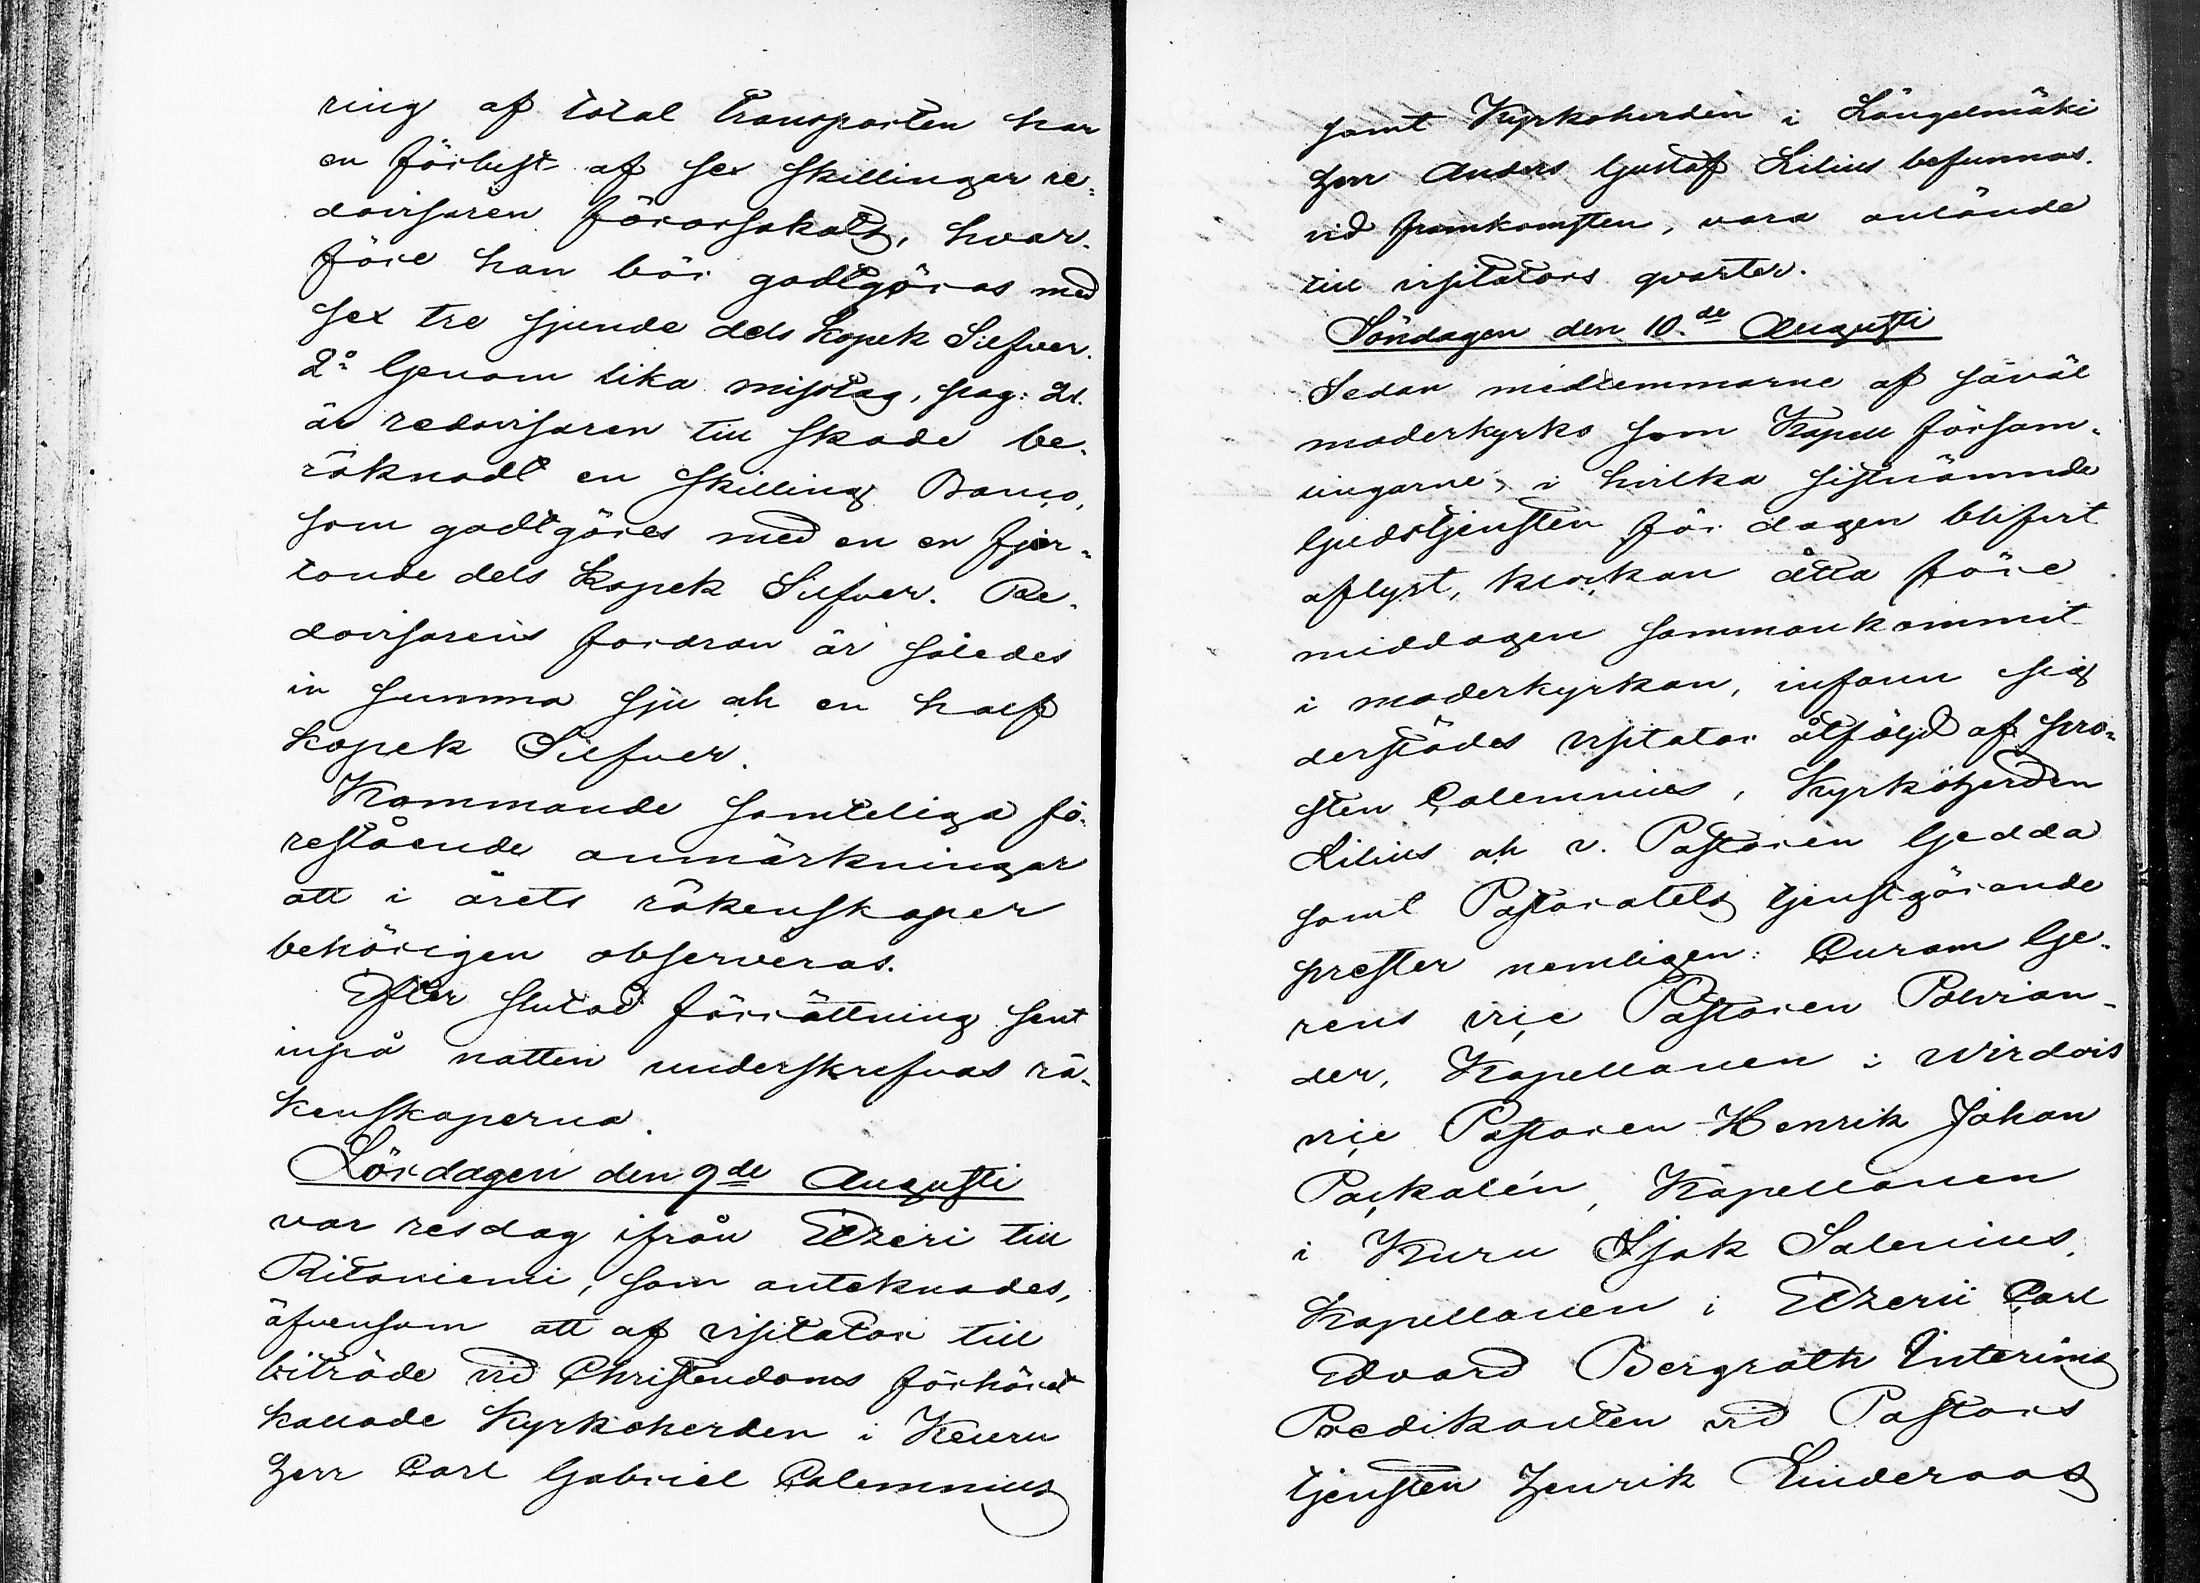 ring af total Transporten har
en förlust af sex skillingar re-
dovisaren förorsakats, hvar-
före han bör godtgöras med
sex tre sjunde dels kopek Silfver.
2:o Genom lika misstag, pag: 21.
är redovisaren till skada be-
räknadt en skilling Banco,
som godtgöres med en en fjor-
tonde dels kopek Silfver. Re-
dovisarens fordran är således
in summa sju och en half
kopek Silfver.
Kommande samteliga fö-
restående anmärkningar
att i årets räkenskaper
behörigen observeras.
Efter slutad förrättning sent
inpå natten underskrefvos rä-
kenskaperna.
Lördagen den 9de Augusti
var resdag ifrån Etzeri till
Ritoniemi, som antecknades,
äfvensom att af visitator till
biträde vid Christendoms förhöret
kallade Kyrkoherden i Keuru
Herr Carl Gabriel Calamnius
samt Kyrkoherden i Längelmäki
Herr Anders Gustaf Lilius befunnos.
vid framkomsten, vara anlände
till visitators qvarter.
Söndagen den 10.de Augusti
Sedan medlemmarne af såväl
moderkyrko som Kapell försam-
lingarne, i hvilka sistnämnde
Gudstjensten för dagen blifvit
aflyst, klockan åtta före
middagen sammankommit
i moderkyrkan, infann sig
derstädes visitator åtföljd af pro-
sten Calamnius, Kyrkoherden
Lilius och v. Pastoren Gedda
samt Pastoratets tjenstgörande
prester nemligen: Curam Ge-
rens vice Pastoren Polvian-
der, Kapellanen i Wirdois
vice Pastoren Henrik Johan
Packalén, Kapellanen
i Kuru Isak Salenius,
Kapellanen i Etzeri Carl
Edvard Bergroth Interims
Predikanten vid Pastors
tjensten Henrik Linderoos